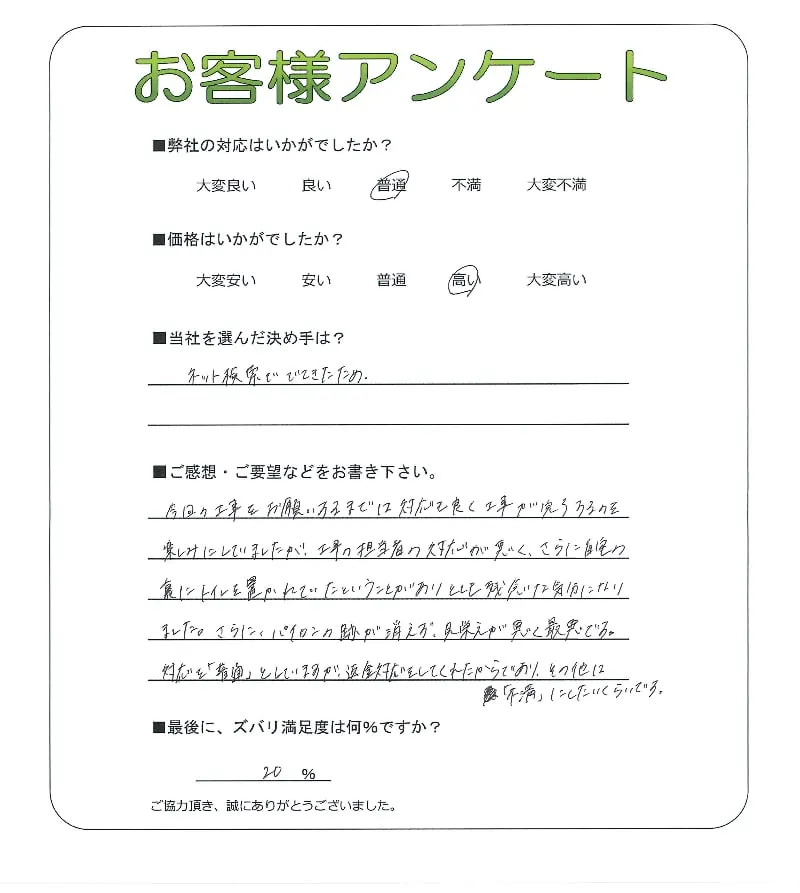 お客様アンケート
■弊社の対応はいかがでしたか？
大変良い 良い 普通 不満 大変不満
■価格はいかがでしたか？
大変安い 安い 普通 高い 大変高い
■当社を選んだ決め手は？
ネット検索ででてきたため.
■ご感想・ご要望などをお書き下さい。
今回の工事をお願いするまでは対応も良く工事が完了するのを
楽しみにしていましたが、工事の担当者の対応が悪く、さらに自宅の
裏にトイレを置かれていたということがありとても残念な気分になり
ました。さらに、パイロンの跡が消えず、見栄えが悪く最悪です。
対応を「普通」としていますが、返金対応をしてくれたからであり、その他は
「不満」にしたいくらいです。
■最後に、ズバリ満足度は何％ですか？
20 %
ご協力頂き、誠にありがとうございました。